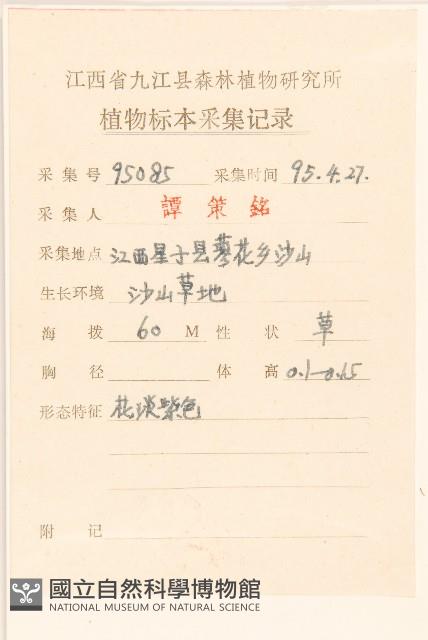 江西省九江县森林植物研究所
植物标本采集记录
采集号 95085 采集时间 95.4.27.
采集人 譚策銘
采集地点 江西星子县蓼花乡沙山
生长环境 沙山草地
海拨 60 M 性状 草
胸径 体高 0.1—0.15
形态特征 花淡紫色
附记
國立自然科學博物館
NATIONAL MUSEUM OF NATURAL SCIENCE